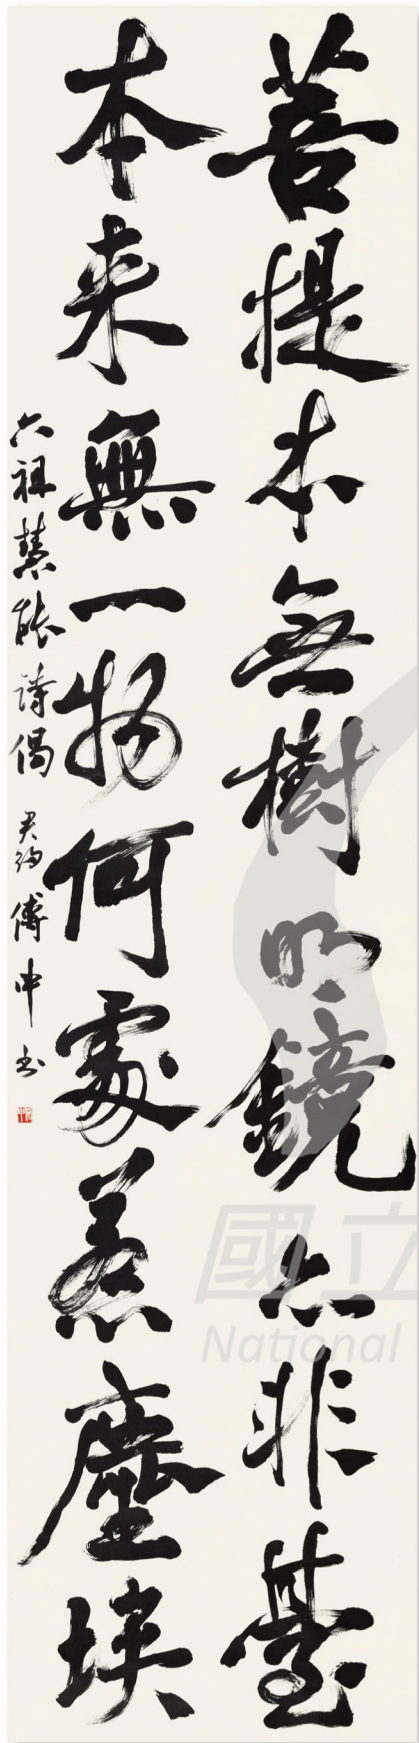 菩提本無樹明鏡亦非臺
本来無一物何處惹塵埃
六祖慧能詩偈 君約傅申書
國立
National